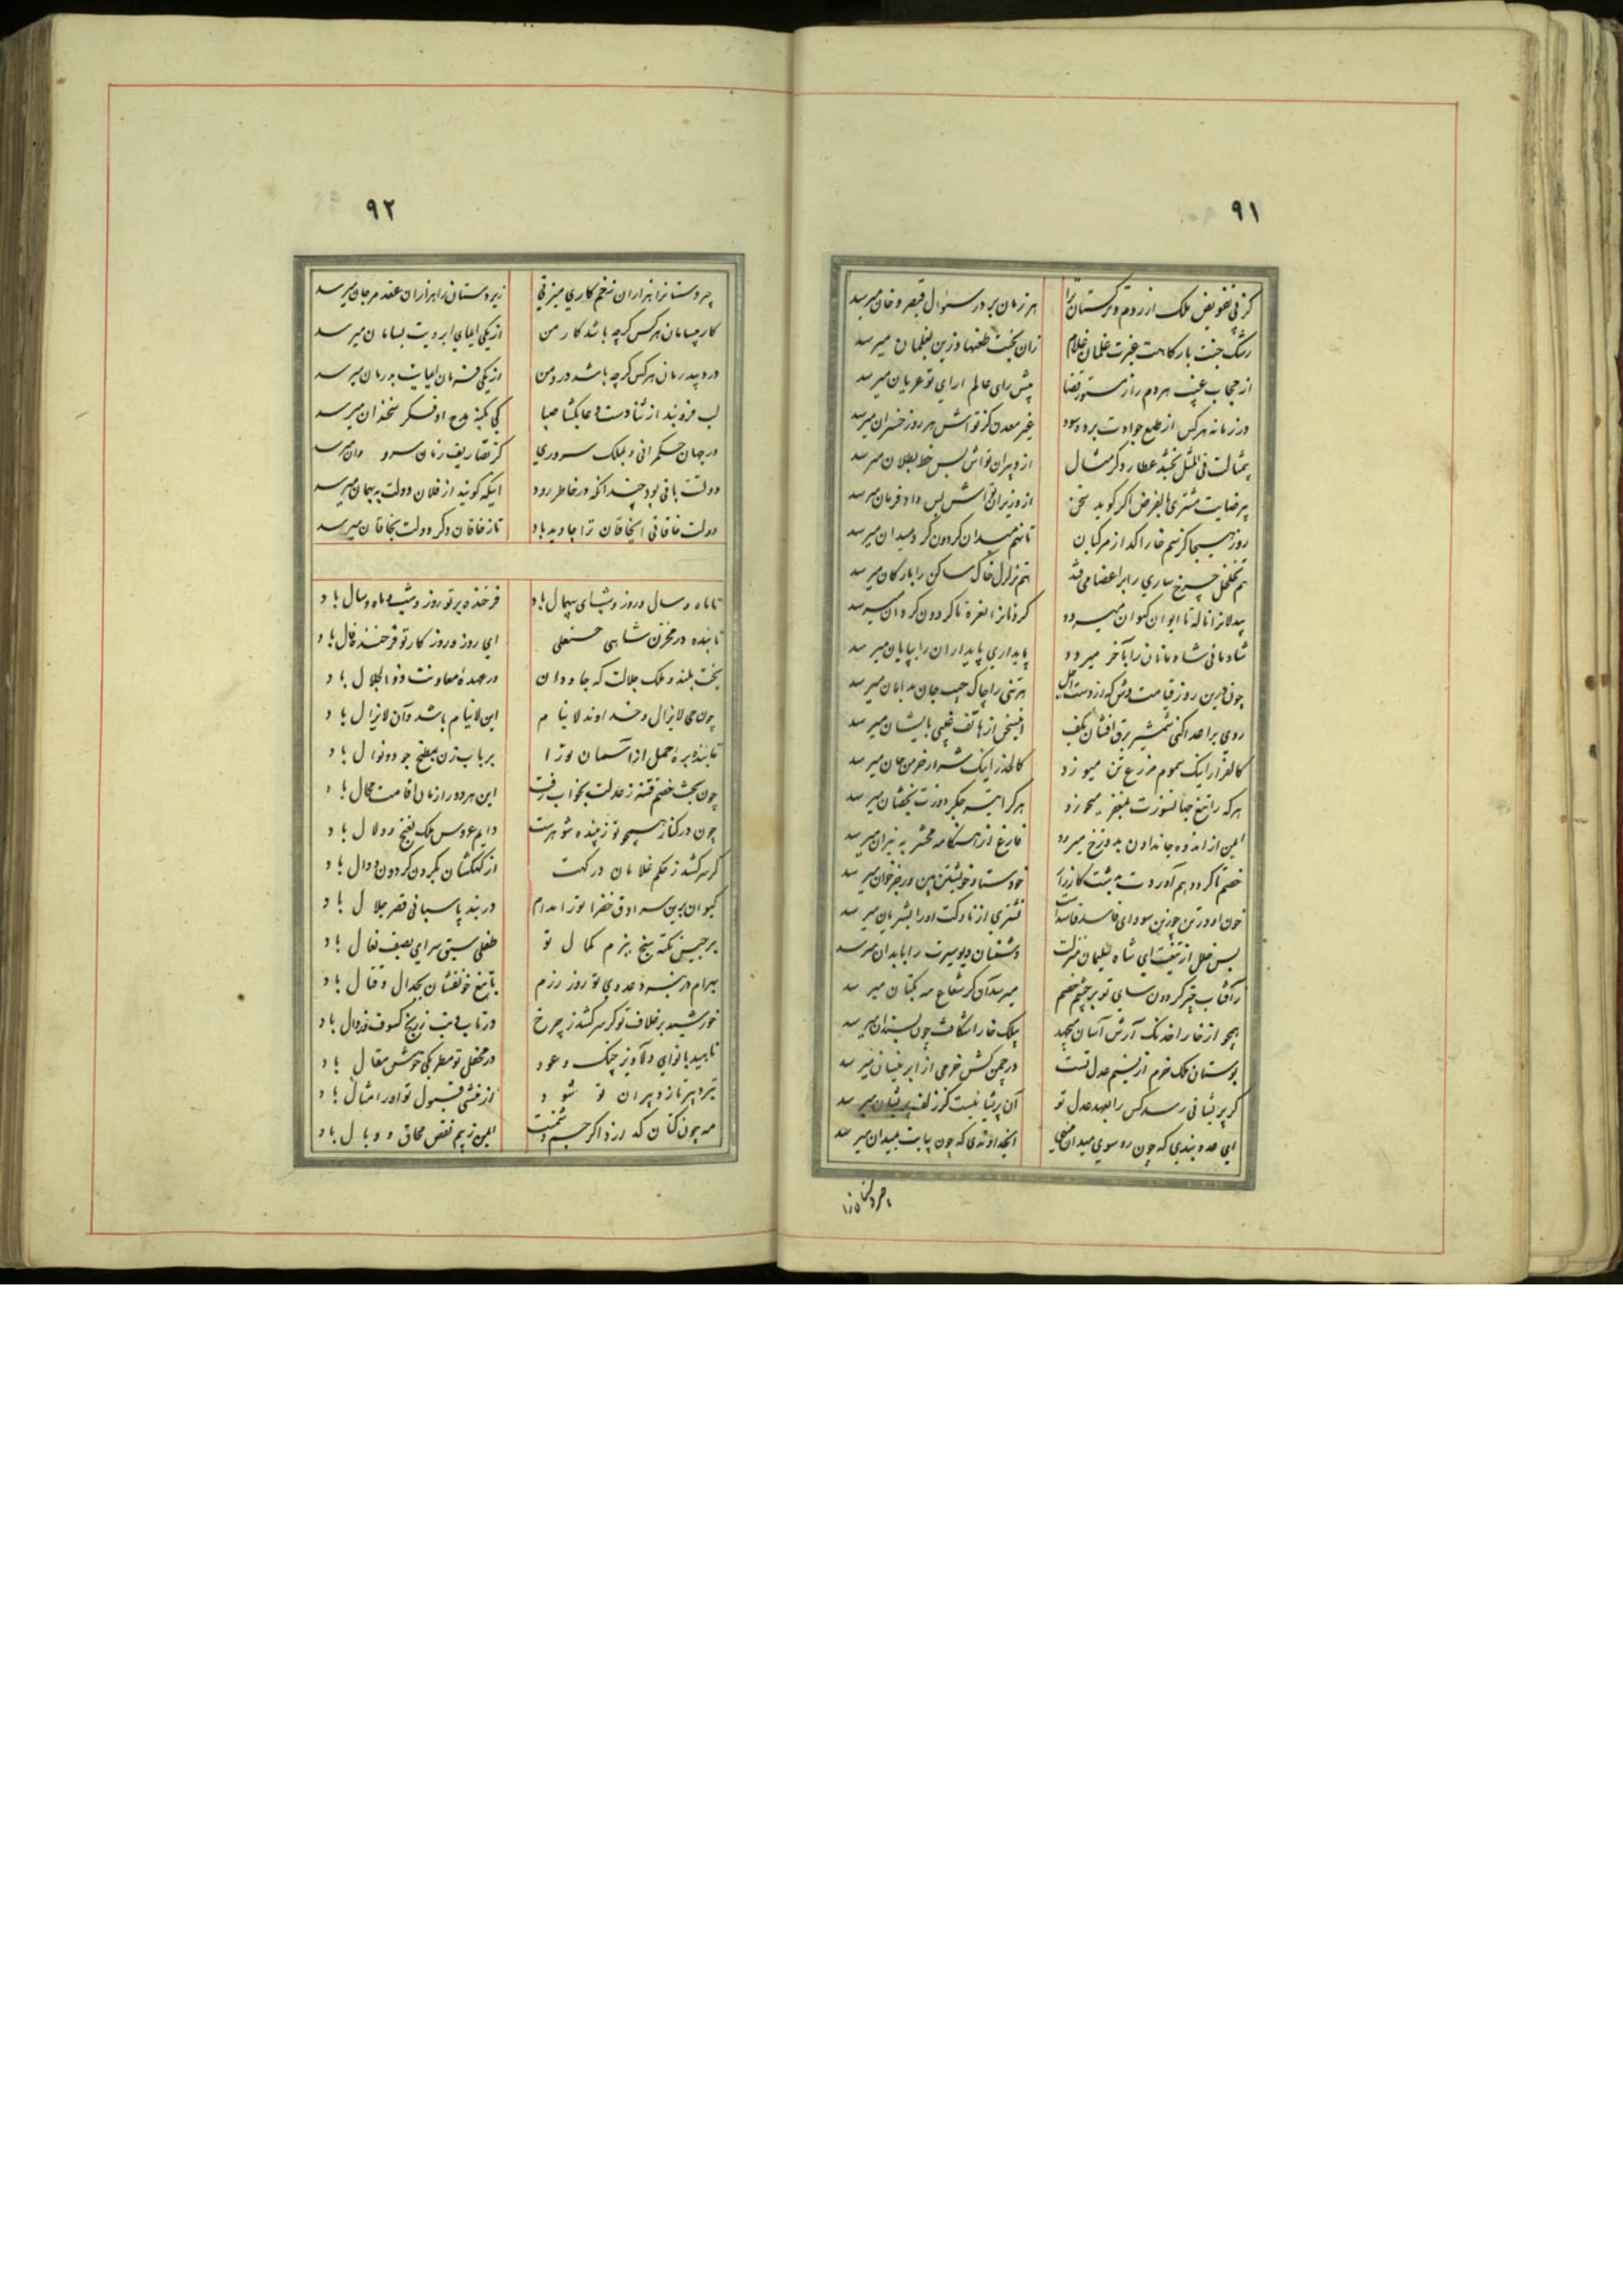 ۹۱
کز پی تفویض ملک از روم و ترکستان را هر زمان بر در سؤال قیصر و خان میرسد
رشک جنت بارکاهت غیرت غلمان غلام زان بجنت طعنها وزین بغلمان میرسد
از حجاب غیب هر دم راز مستور قضا پیش رای عالم ارای تو عریان میرسد
در زمانه هرکس از طبع جوادت برده سود غیر معدن کز تواش هر روز خسران میرسد
بیمثالت فی المثل بخشد عطارد کر مثال از دبیران تواش بس خط بطلان میرسد
بیرضایت مشتری بالفرض اکر کوید سخن از وزیران تواش بس داد فرمان میرسد
روز هیجا کز سم خارا کداز مرکبان تا نهم میدان کردون کرد میدان میرسد
هم تخلخل چرخ ساری را بر اعضا می فتد هم تزلزل خاک ساکن را بارکان میرسد
بیدلانرا ناله تا ایوان کیوان میرود کردنانرا نعره تا کردون کردان میرسد
شادمانی شادمانان را بآخر میرود پایداری پایداران را بپایان میرسد
چون درین روز قیامت وش که از دست اجل هر تنی را چاک جیب جان بدامان میرسد
روی بر اعدا کنی شمشیر برق افشان بکف اینسخن از هاتف غیبی بایشان میرسد
کالفرار اینک سموم مزرع تن میوزد کالحذر اینک شرار خرمن جان میرسد
هرکه را تیغ جهانسوزت بمغفر میخورد هرکرا تیر جکر دوزت بخفتان میرسد
ایمن از اندوه جاندادن بدوزخ میرود فارغ از هنکامه محشر به نیران میرسد
بوستان ملک خرم از نسیم عدل تست در چمن کش خرمی از ابر نیسان میرسد
کر پریشانی رسد کس را بعهد عدل تو آن پریشانیست کز زلف پریشان میرسد
ای عدو بندی که چون رو سوی میدان مینهی ایخداوندی که چون پایت بمیدان میرسد
۹۲
چیره دستانرا هزاران زخم کاری میزنی زیر دستان را هزاران عقد مرجان میرسد
کار بیسامان هرکس کرچه باشد کار من از یکی ایمای ابرویت بسامان میرسد
درد بیدرمان هرکس کرچه باشد درد من از یکی فرمان لبهایت بدرمان میرسد
در جهان حکمرانی و بملک سروری
دولتت باقی بود چندانکه در خاطر رود اینکه کویند از فلان دولت ببهمان میرسد
دولت خاقانی ایخاقان ترا جاوید باد تا ز خاقان دکر دولت بخاقان میرسد
تا ماه و سال و روز و شبای بیهمال باد فرخنده بر تو روز و شب و ماه و سال باد
تابنده در مخزن شاهی حسنعلی ای روز و روز کار تو فرخنده فال باد
بخت بلند و ملک جلالت که جاودان در عهدهٔ معاونت ذوالجلال باد
چون حی لایزال و خداوند لاینام این لاینام باشد و آن لایزال باد
تابنده بره حمل از آسمان تو را بر بابزن بمطبخ جود و نوال باد
چون بخت خصم فتنه ز عدلت بخواب رفت این هر دو را زمان اقامت محال باد
چون در کنار همچو تو زیبنده شوهرست دایم عروس ملک بغنج و دلال باد
کر سر کشد ز حکم غلامان درکهت از کهکشان بکردن کردون دوال باد
کیوان برین سرادق خضرا تو را مدام در بند پاسبانی قصر جلال باد
برجیس نکته سنج ببزم کمال تو طفلی سبق سرای بصف نعال باد
بهرام در نبرد عدوی تو روز رزم با تیغ خونفشان بجدال و قتال باد
خورشید بر خلاف تو کر سر کشد ز چرخ در تاب و تب ز رنج کسوف و زوال باد
ناهید با نوای دلاویز چنک و عود در محفل تو مطربکی خوش مقال باد
تیر دبیر تا ز دبیران تو شود از منشی قبول تو اورا مثال باد
مه چون کتان که لرزد اکر جسم دشمنت ایمن ز بیم نقص محاق و وبال باد